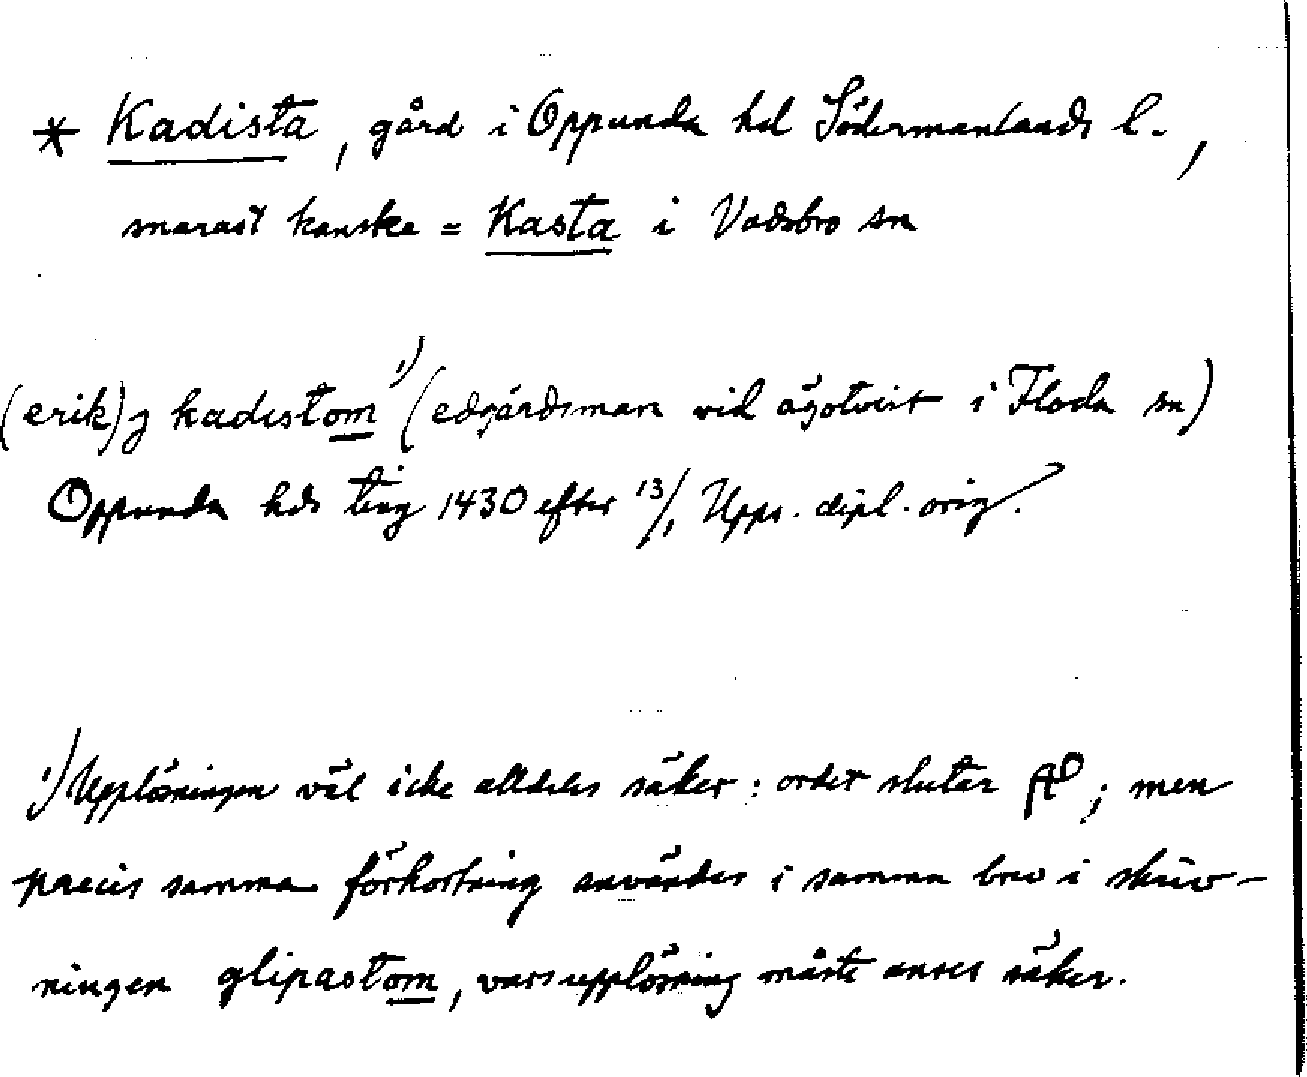 * Kadista, gård i Oppunda hd Södermanlands l.,
snarast kanske = Kasta i Vadsbro sn
(erik) j kadistom ¹) (edgärdsman vid ägotvist i Floda sn)
Oppunda hds ting 1430 efter 13/1 Upps. dipl. orig.
¹) Upplösningen väl icke alldeles säker: ordet slutar; men
precis samma förkortning användes i samma brev i skriv-
ningen glipastom, vars upplösning måste anses säker.